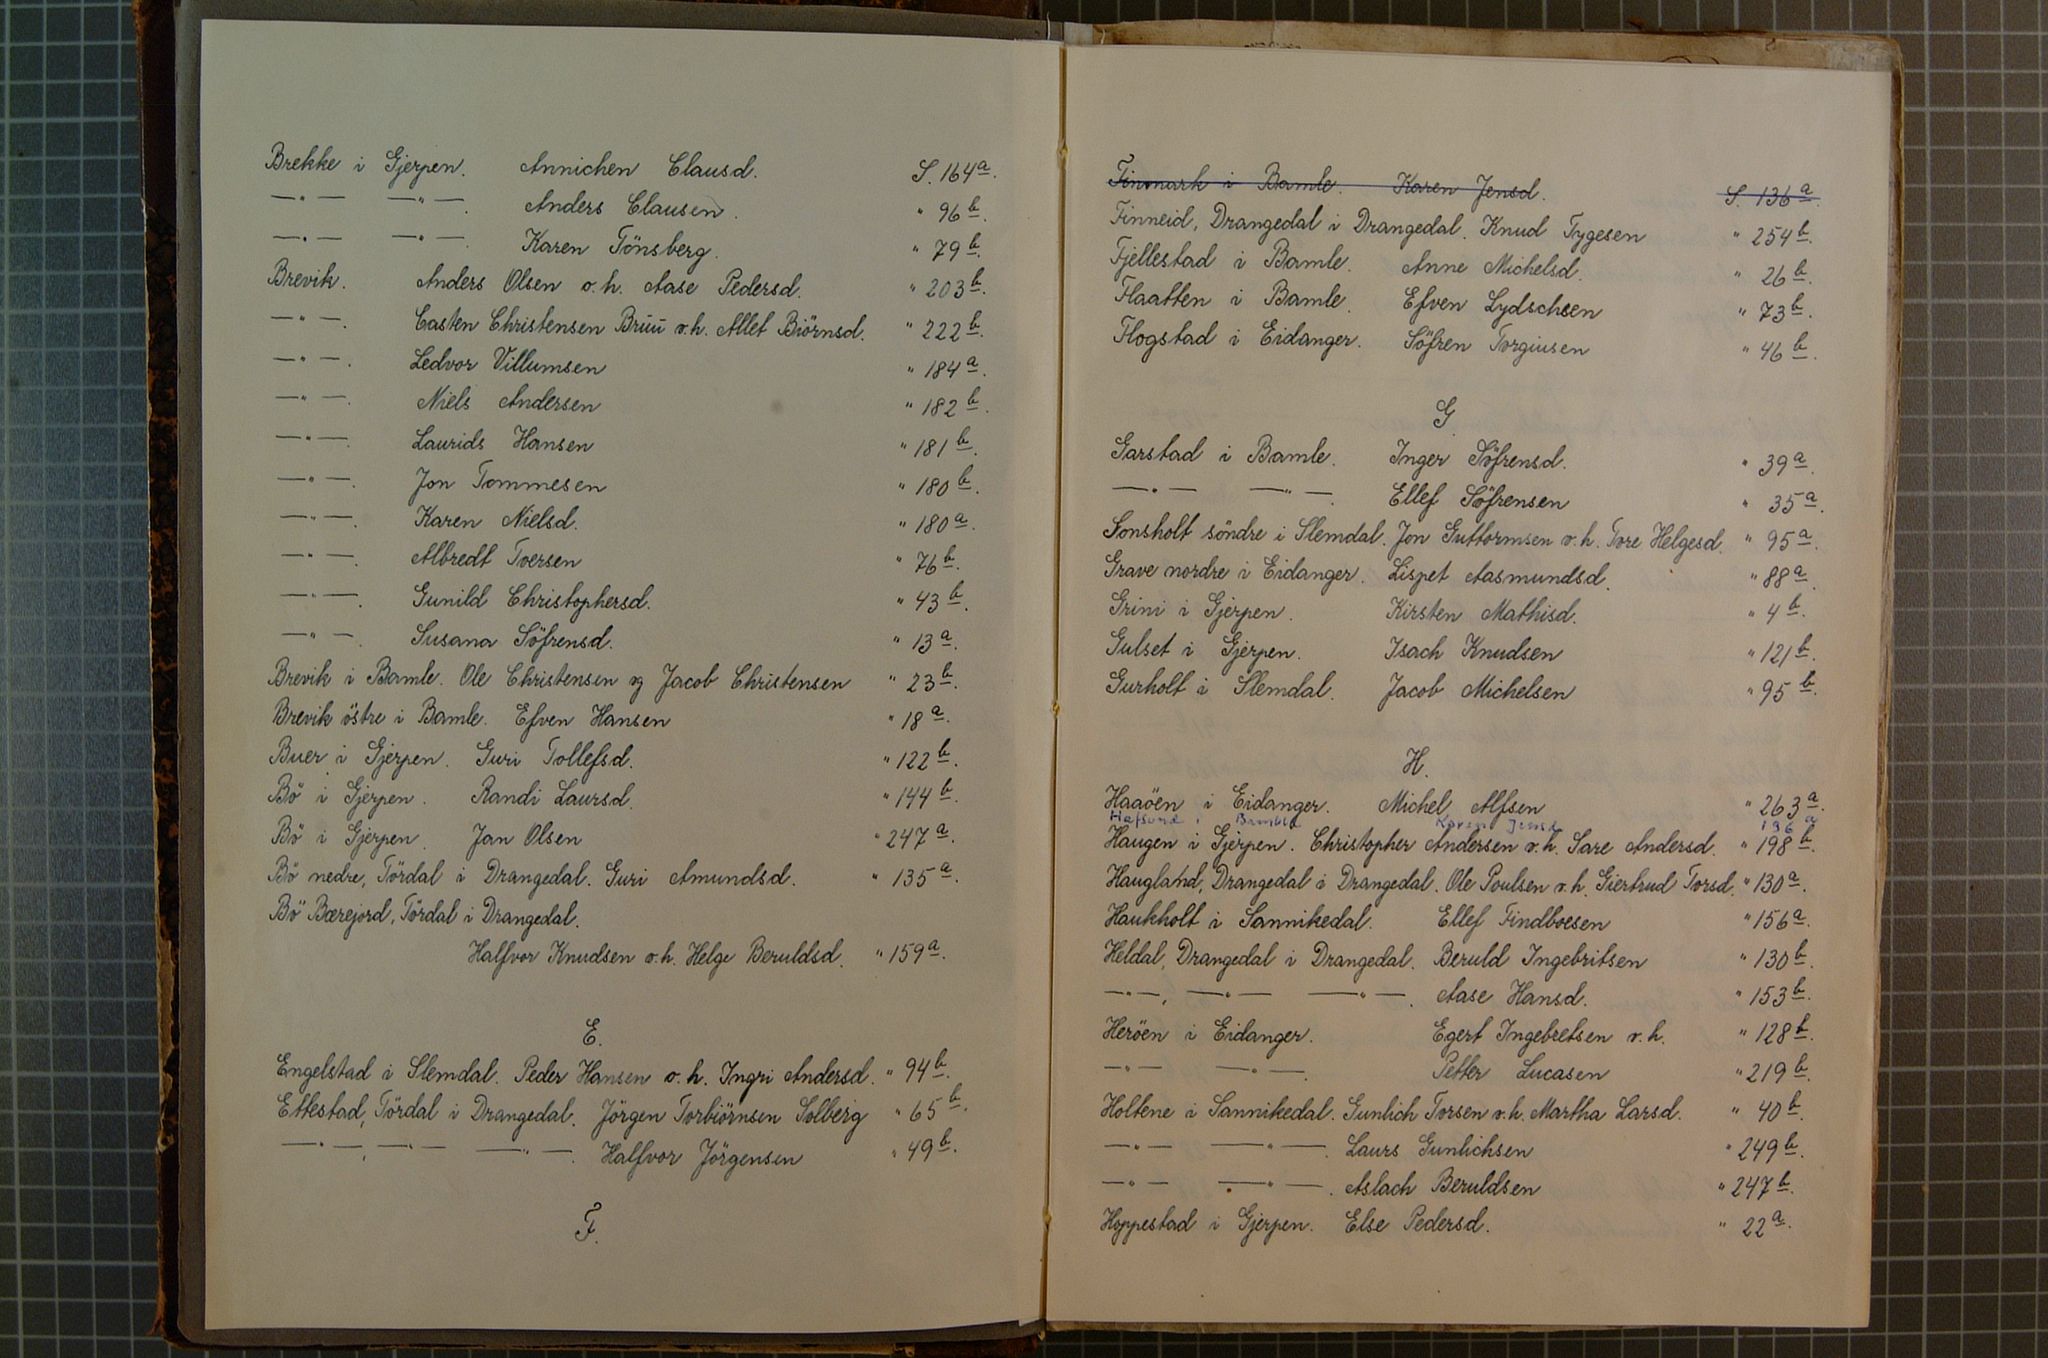 Brekke i Gjerpen. Annichen Clausd. S. 164a.
—"— —"—. Anders Clausen. " 96b.
—"— —"—. Karen Tönsberg. " 79b.
Brevik. Anders Olsen o.h. Aase Pedersd. " 203b.
—"—. Casten Christensen Bruu o.h. Allet Biörnsd. " 222b.
—"—. Ledvor Villumsen " 184a.
—"—. Niels Andersen " 182b.
—"—. Laurids Hansen " 181b.
—"—. Jon Tommesen " 180b.
—"—. Karen Nielsd. " 180a.
—"—. Albredt Iversen " 76b.
—"—. Gunild Christophersd. " 43b.
—"—. Susana Söfrensd. " 13a.
Brevik i Bamle. Ole Christensen og Jacob Christensen " 23b.
Brevik östre i Bamle. Efven Hansen " 18a.
Buer i Gjerpen. Guri Tollefsd. " 122b.
Bö i Gjerpen. Randi Laursd. " 144b.
Bö i Gjerpen. Jan Olsen " 247a.
Bö nedre, Tördal i Drangedal. Guri Amundsd. " 135a.
Bö Bærejord, Tördal i Drangedal.
Halfvor Knudsen o.h. Helge Beruldsd. " 159a.
E.
Engelstad i Slemdal. Peder Hansen o.h. Ingri Andersd. " 94b.
Ettestad, Tördal i Drangedal. Jörgen Torbiörnsen Solberg " 65b.
—"—, —"— —"—. Halfvor Jörgensen " 49b.
F.
Finmark i Bamle. Karen Jensd. S. 136a.
Finneid, Drangedal i Drangedal. Knud Tygesen " 254b.
Fjellestad i Bamle. Anne Michelsd. " 26b.
Flaatten i Bamle. Efven Lydschsen " 73b.
Flogstad i Eidanger. Söfren Torgiusen " 46b.
G
Garstad i Bamle. Inger Söfrensd. " 39a.
—"— —"—. Ellef Söfrensen " 35a.
Gonsholt söndre i Slemdal. Jon Guttormsen o.h. Tore Helgesd. " 95a.
Grave nordre i Eidanger. Lispet Aasmundsd. " 88a.
Grini i Gjerpen. Kirsten Mathisd. " 4b.
Gulset i Gjerpen. Isach Knudsen " 121b.
Gurholt i Slemdal. Jacob Michelsen " 95b.
H.
Haaöen i Eidanger. Michel Alfsen " 263a.
Hafsund i Bamble Karen Jensd 196a
Haugen i Gjerpen. Christopher Andersen o.h. Sare Andersd. " 198b.
Haugland, Drangedal i Drangedal. Ole Poulsen o.h. Giertrud Torsd. " 130a.
Haukholt i Sannikedal. Ellef Findboesen " 156a.
Heldal, Drangedal i Drangedal. Beruld Ingebritsen " 130b.
—"—, —"— —"—. Aase Hansd. " 153b.
Heröen i Eidanger. Egert Ingebretsen o.h. " 128b.
—"— —"—. Petter Lucasen " 219b.
Holtene i Sannikedal. Gunlich Torsen o.h. Martha Larsd. " 40b.
—"— —"—. Laurs Gunlichsen " 249b.
—"— —"—. Aslach Beruldsen " 247b.
Hoppestad i Gjerpen. Else Pedersd. " 22a.